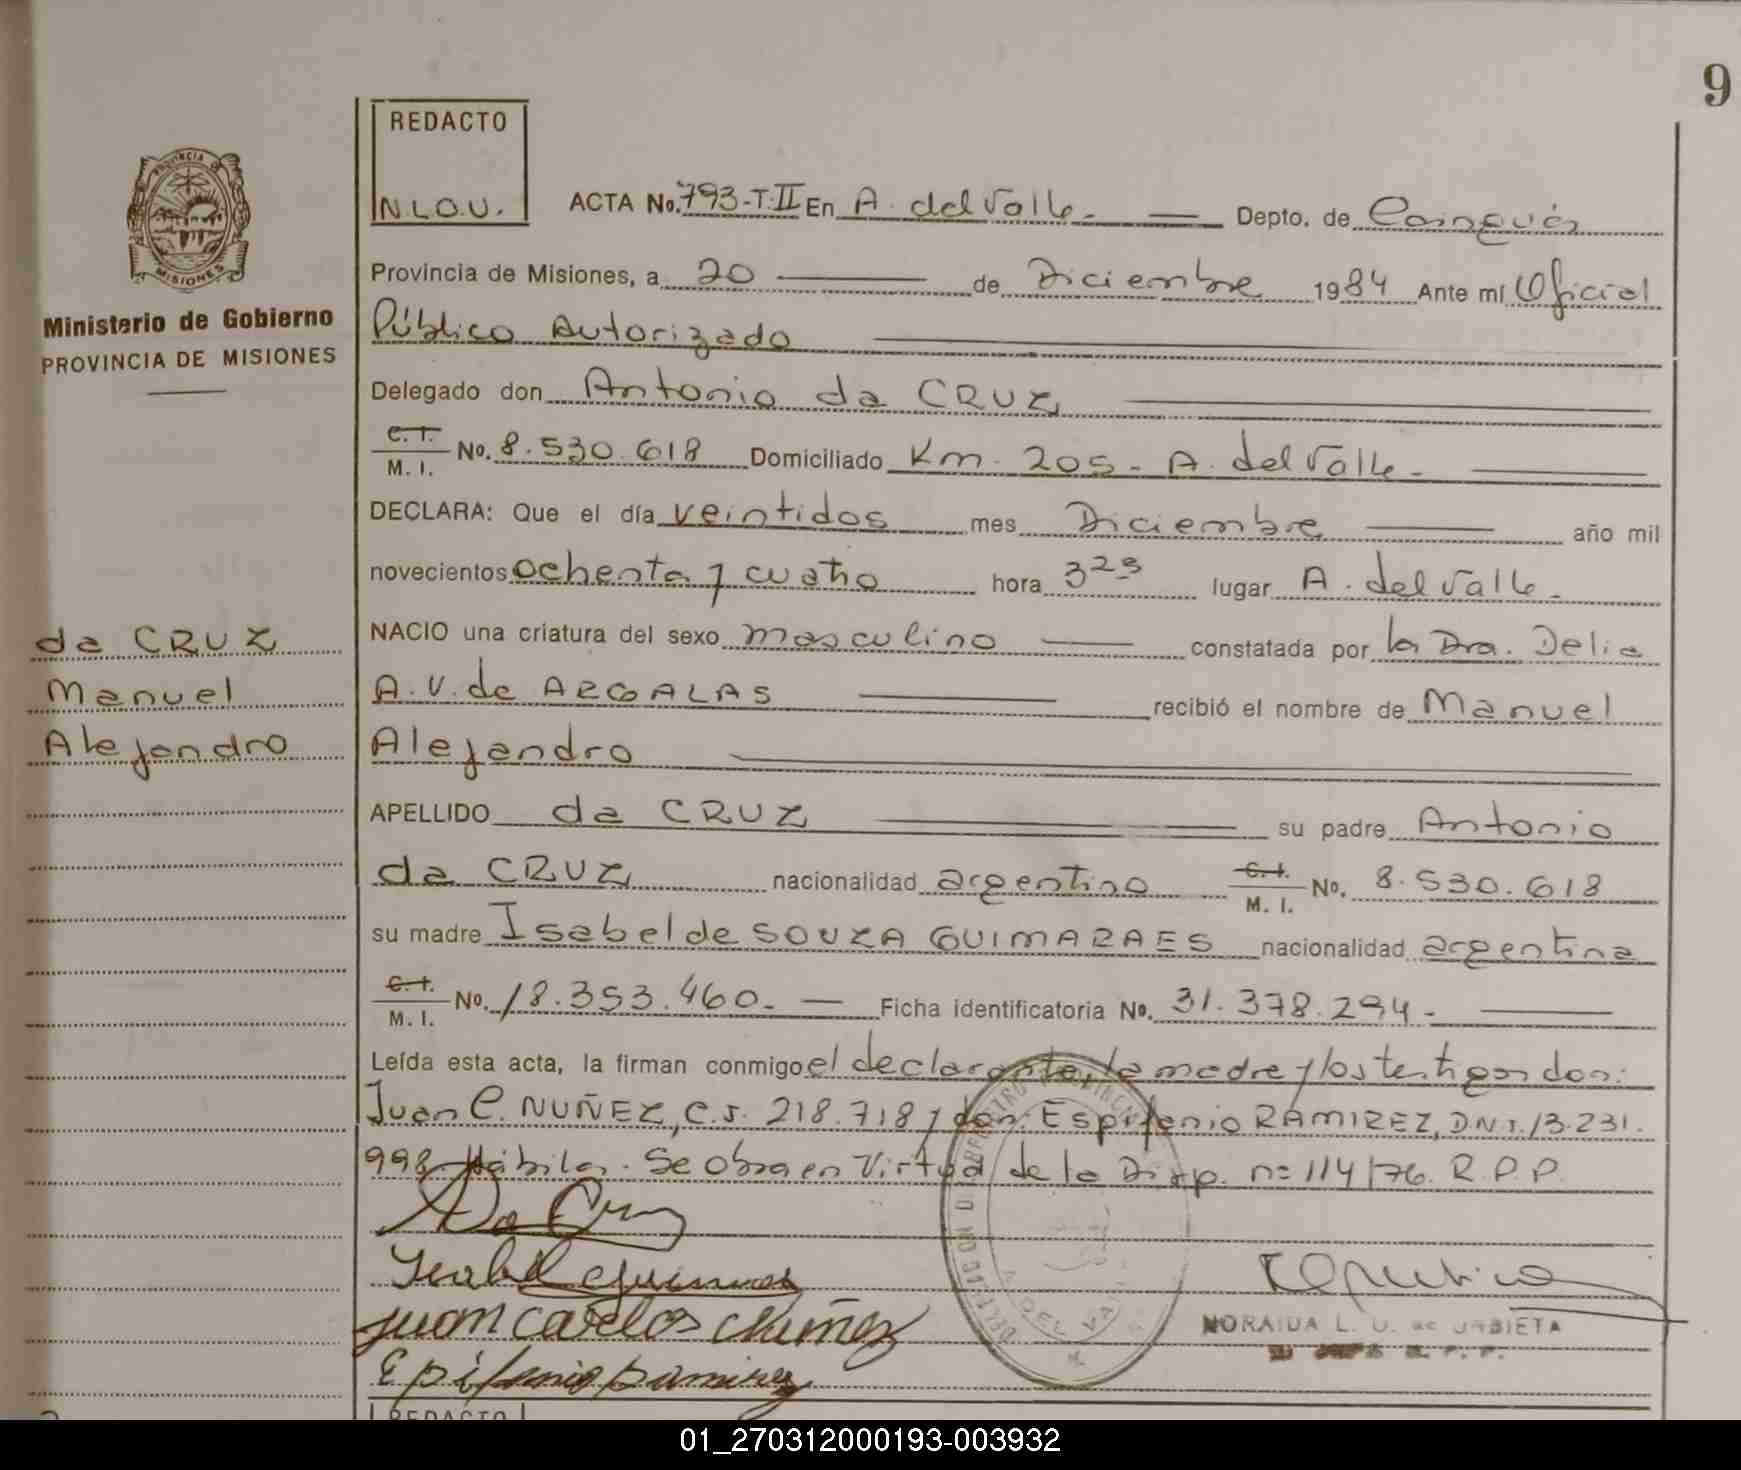 9
REDACTO
N.L.O.U.
PROVINCIA DE
MISIONES
Ministerio de Gobierno
PROVINCIA DE MISIONES
ACTA No. 793-T.II En A. del Valle.- Depto. de Cainguás
Provincia de Misiones, a 20 de Diciembre 1984 Ante mí Oficial
Público Autorizado
Delegado don Antonio da CRUZ
C.I. M.I. No. 8.530.618 Domiciliado Km. 205- A. del Valle-
DECLARA: Que el día veintidos mes Diciembre año mil
novecientos ochenta y cuatro hora 3 lugar A. del Valle-
NACIO una criatura del sexo masculino constatada por la Dra. Delia
A.V. de ARGALAS recibió el nombre de Manuel
Alejandro
APELLIDO da CRUZ su padre Antonio
da CRUZ nacionalidad argentino C.I. M.I. No. 8.530.618
su madre Isabel de SOUZA GUIMARAES nacionalidad argentina
C.I. M.I. No. 18.353.460.- Ficha identificatoria No. 31.378.294-
Leída esta acta, la firman conmigo el declarante, la madre y los testigos don:
Juan C. NUÑEZ, C.I. 218.718 y don: Espifenio RAMIREZ, D.N.I. 13.231.
998- Hábiles. Se obra en Virtud de la Disp. nº 114/76. R.P.P.
da CRUZ
Manuel
Alejandro
Da Cruz
Juan Carlos Nuñez
Epifenio Ramirez
NORAIDA L. U. de URBIETA
REDACTO
01_270312000193-003932